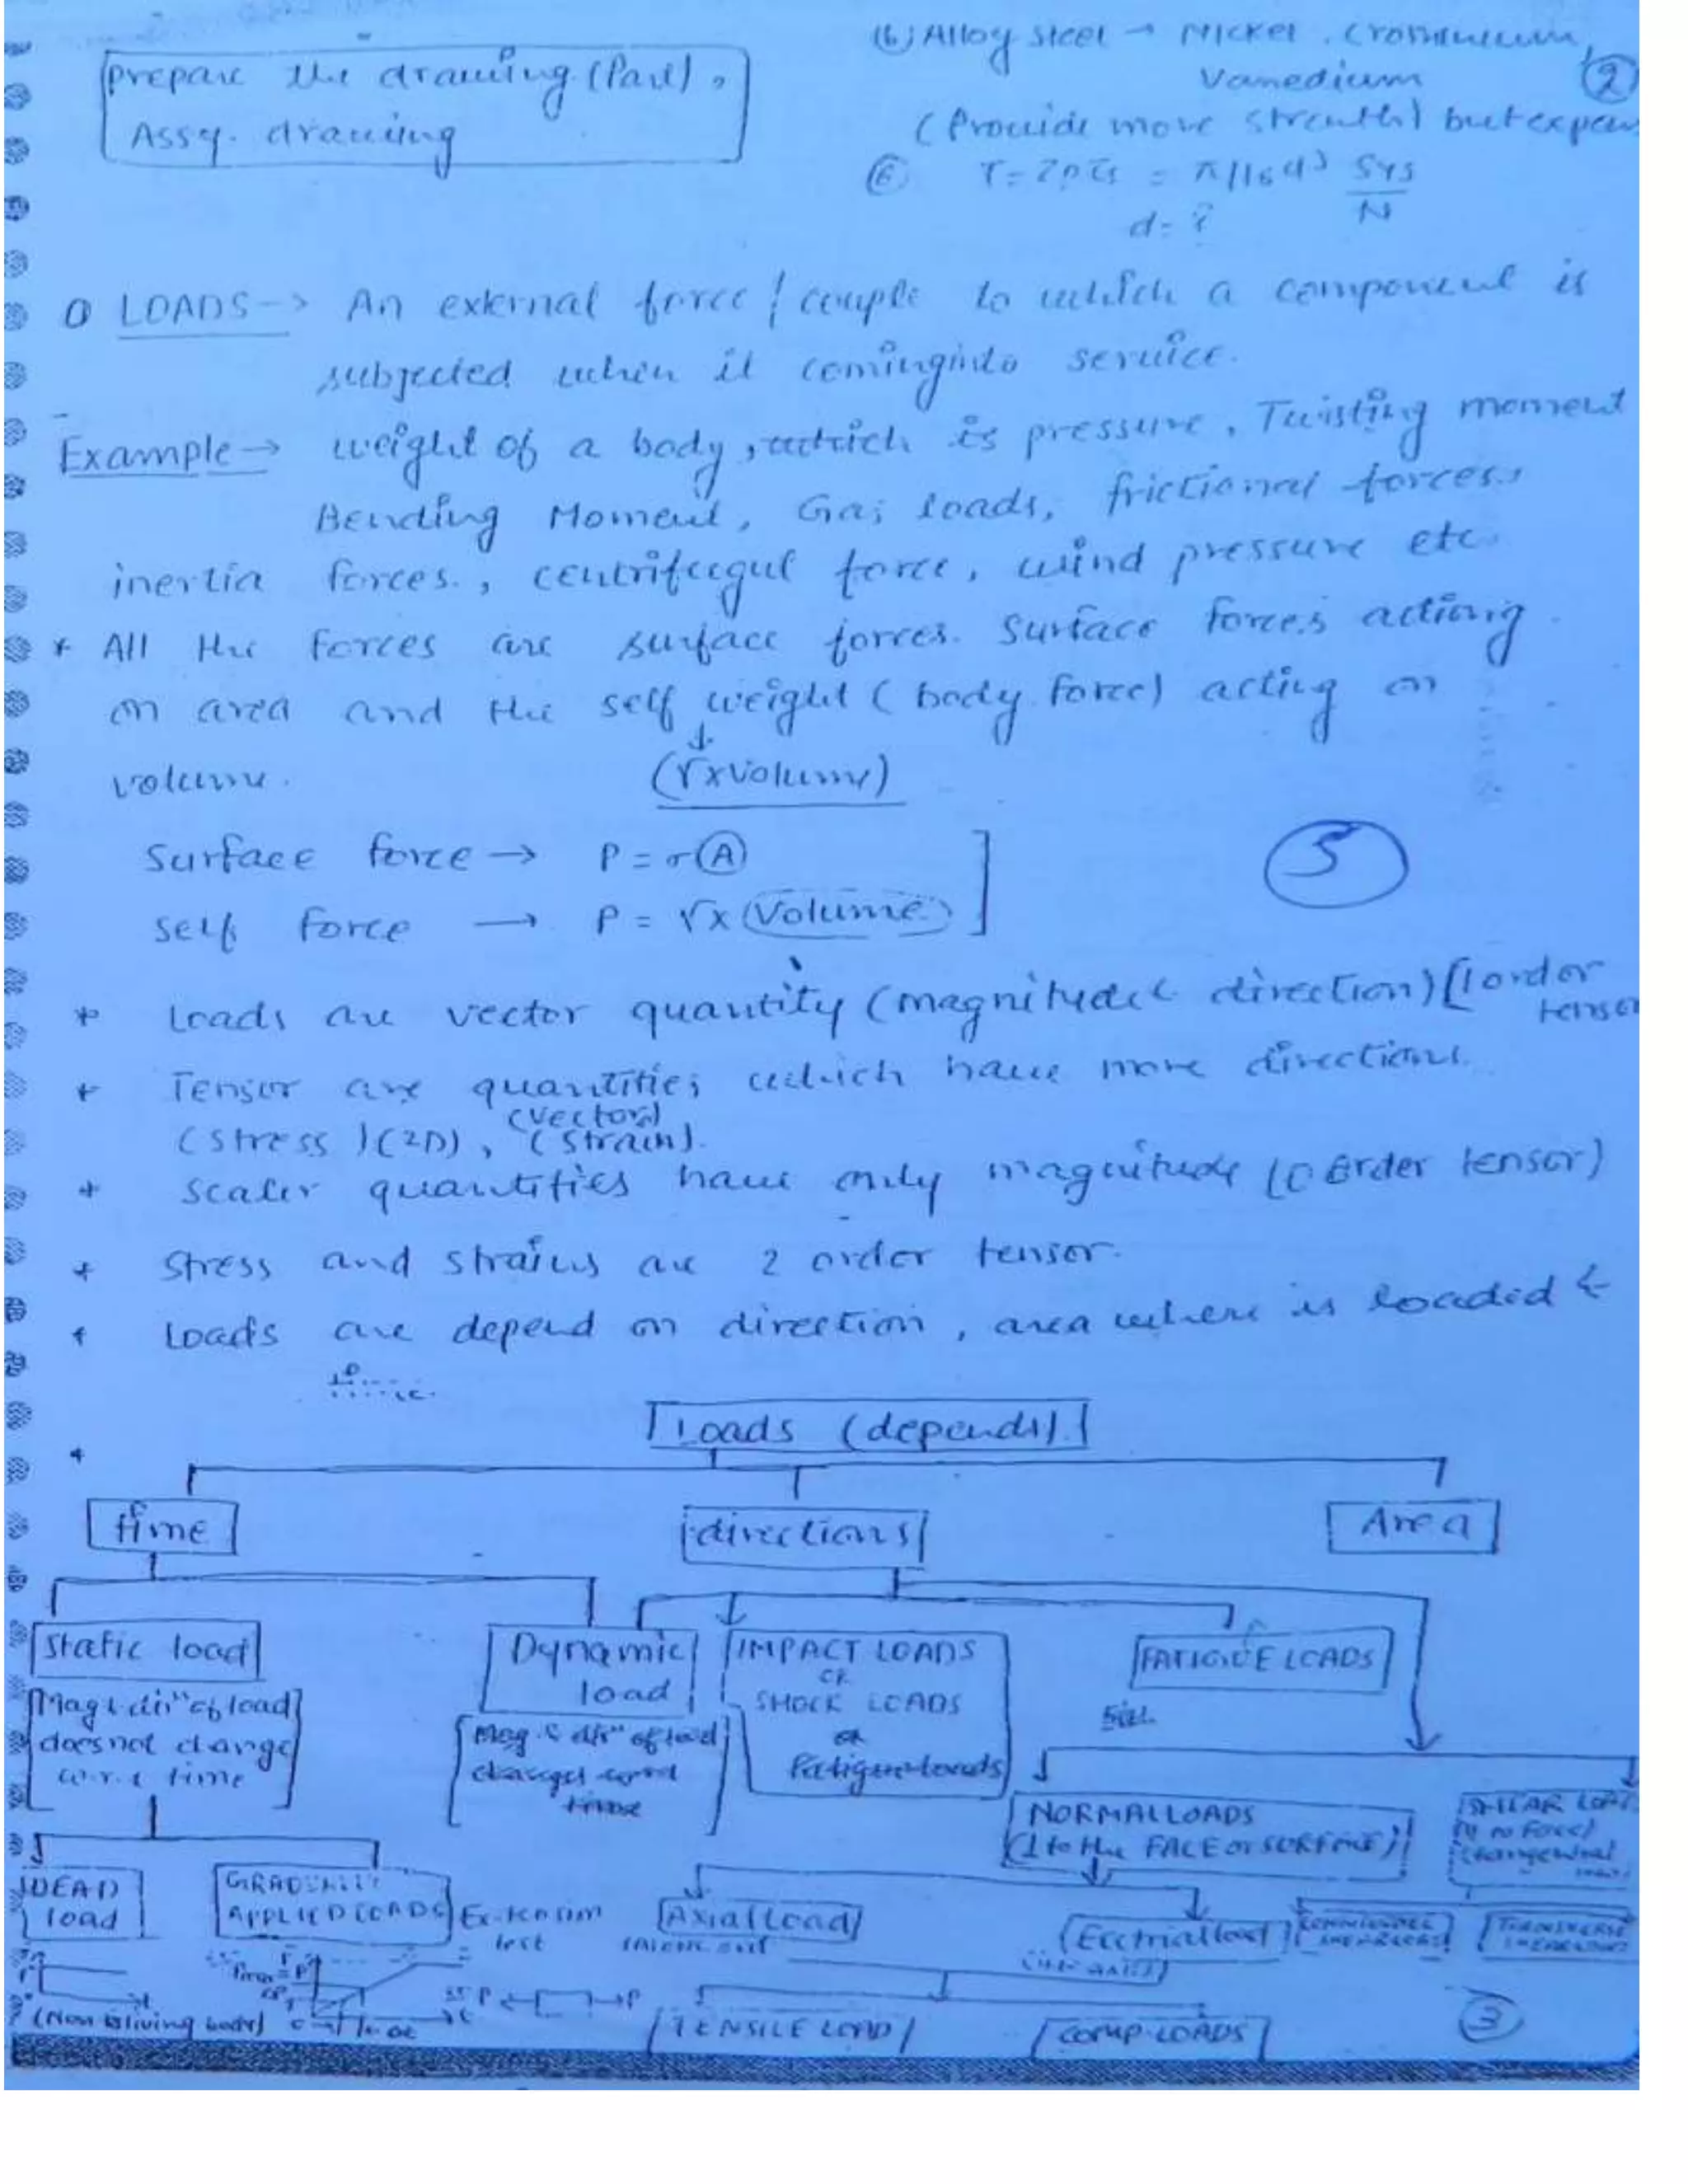 prepare the drawing (Part),
Assy. drawing
(b) Alloy steel → Nickel, Cromineum,
Vanedium
②
(Provide more strenth) but expen
⑥ T = Zp τs = π/16 d³ Sys/N
d = ?
LOADS → An external force / couple to which a component is
subjected when it cominginto service.
Example → weight of a body, which is pressure, Twisting moment
Bending Moment, Gas loads, frictional forces,
inertia forces, centrifugul force, wind pressure etc.
* All the forces are surface forces. Surface forces acting
on area and the self weight (body force) acting on
volume. (γ x volume)
Surface force → P = σ(A)
Self force → P = γ x (Volume)
5
* Loads are vector quantity (magnitude & direction) [1 order
tensor
* Tensor are quantities which have more directions.
(vectors)
(stress) (2D), (strain).
* Scaler quantities have only magnitude (0 order tensor)
* Stress and strains are 2 order tensor.
* Loads are depend on direction, area where is loaded &
time.
* Loads (depends)
time directions Area
Static load
Dynamic
load
IMPACT LOADS
OR
SHOCK LOADS
OR
Fatigue loads
FATIGUE LOADS
Mag & dirⁿ of load
does not change
w.r.t time
Mag & dirⁿ of load
changes w.r.t
time
NORMAL LOADS
(⊥ to the FACE or SURFACE)
SHEAR LOA
DEAD
load
GRADUALLY
APPLIED LOADS
Ex. tension
test
Axial Load
Ecctrial load
TRANSVERSE
P P
(Non living body)
TENSILE LOAD
COMP. LOADS
③